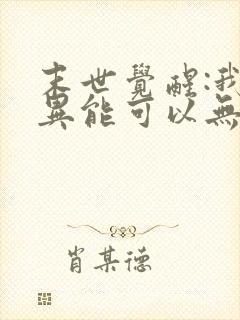 末世覺醒:我
異能可以無
肖某德